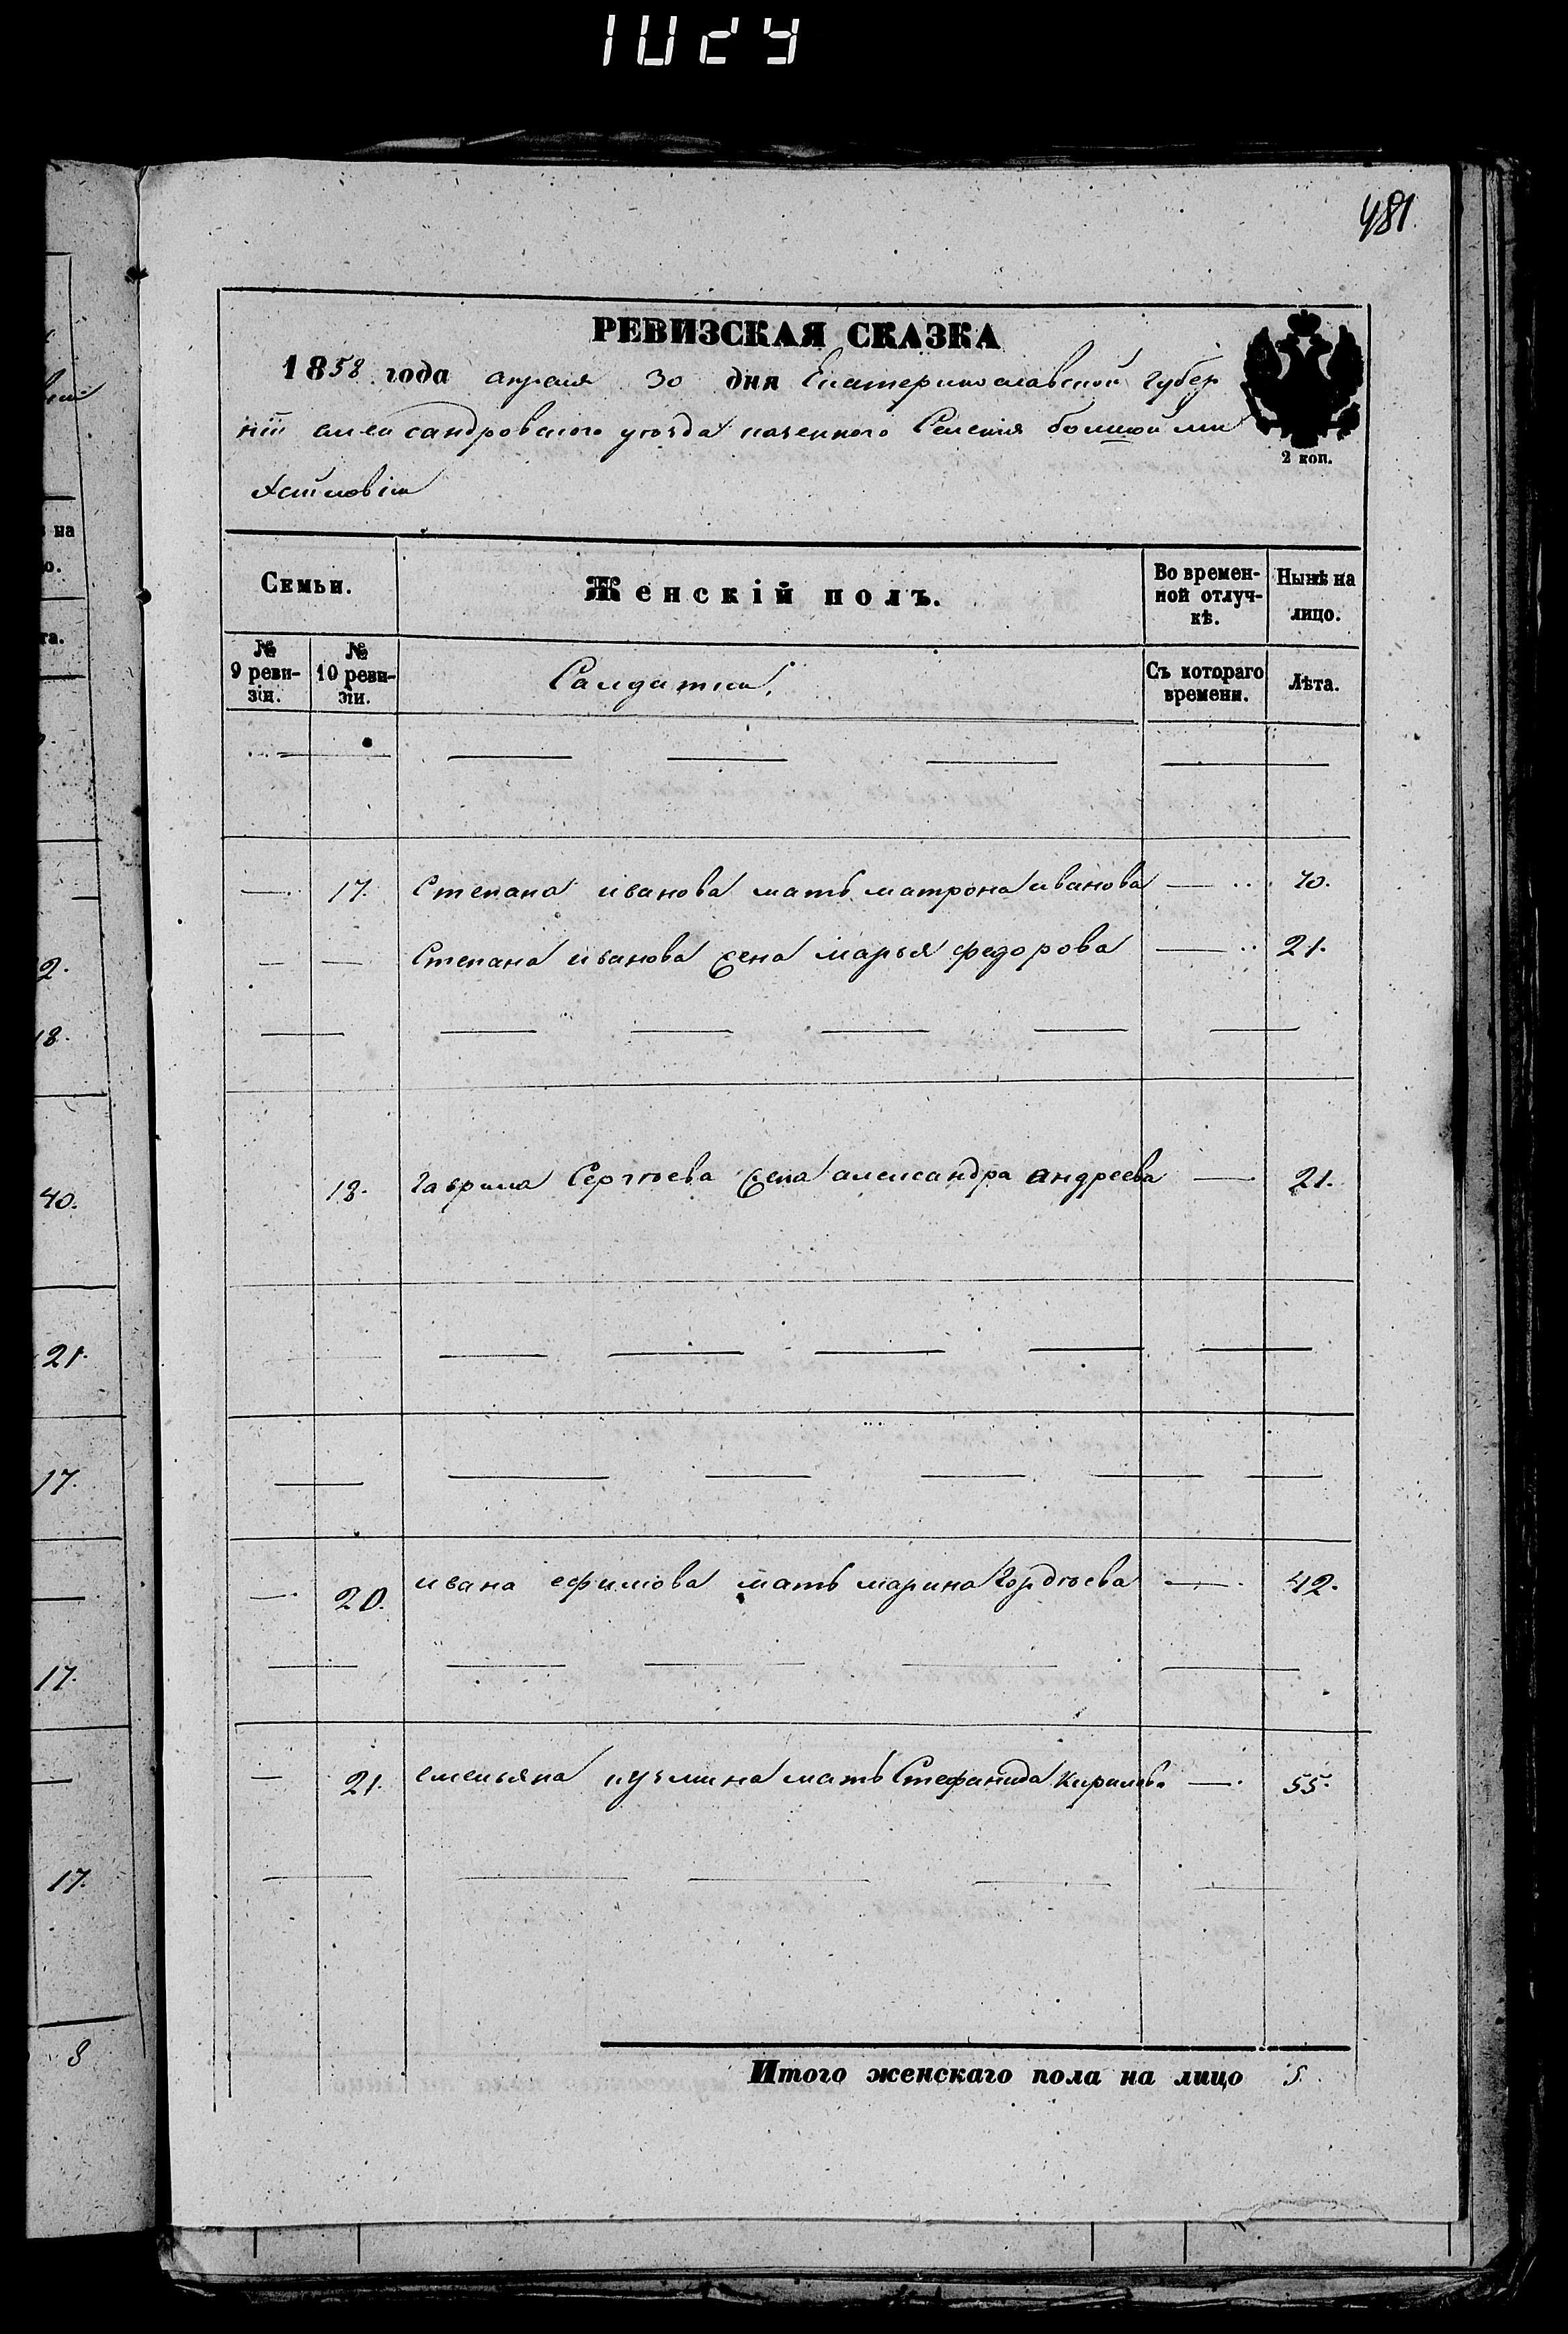 1024
481.
РЕВИЗСКАЯ СКАЗКА
1858 года апреля 30 дня Екатеринославской Губер
ніи александровского уѣзда казенного Селенія болшой ми
хайловки
2 коп.
Семьи. Женскій полъ. Во времен-ной отлуч-кѣ. Нынѣ на лицо.
№ 9 реви-зіи. № 10 реви-зіи. Салдатки. Съ котораго времени. Лѣта.
17. Степана иванова мать матрона иванова 40.
Степана иванова жена марья федорова 21.
18. гаврила Сергѣева жена александра андреева 21.
20. ивана ефимова мать марина Гордѣева 42.
21. емельяна кузмина мать Стефанида Кирилова 55.
Итого женскаго пола на лицо 5.
на
о.
та.
2.
18.
40.
21.
17.
17.
17.
8